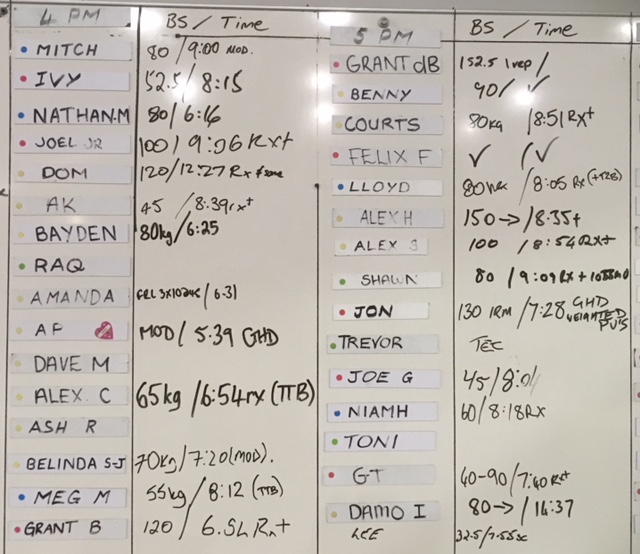 4 PM BS / Time
MITCH 80 / 9:00 MOD.
IVY 52.5 / 8:15
NATHAN.M 80 / 6:16
JOEL JR 100 / 9:06 RX+
DOM 120 / 12:27 Rx + some
AK 45 / 8:39rx+
BAYDEN 80kg / 6:25
RAQ
AMANDA 3x10 / 6.31
AF MOD / 5:39 GHD
DAVE M
ALEX. C 65kg / 6:54rx (TTB)
ASH R
BELINDA S-J 70kg / 7:20 (MOD).
MEG M 55kg / 8:12 (TTB)
GRANT B 120 /
5 PM BS / Time
GRANT dB 152.5 1rep /
BENNY 90 / ✓
COURTS 80kg / 8:51 RX+
FELIX F ✓ / ✓
LLOYD 80 / 8:05 Rx (+TTB)
ALEX H 150 → / 8.35+
ALEX S 100 / 8:54 RX+
SHAWN 80 / 9:09 Rx +
JON 130 1RM / 7:28 GHD WEIGHTED PU'S
TREVOR TEC
JOE G 45 / 8:01
NIAMH 60 / 8:18RX
TONI
GT 40-90 / 7:40 Rx+
DAMO I 80 → / 14:37
LEE 32.5 / 7.55